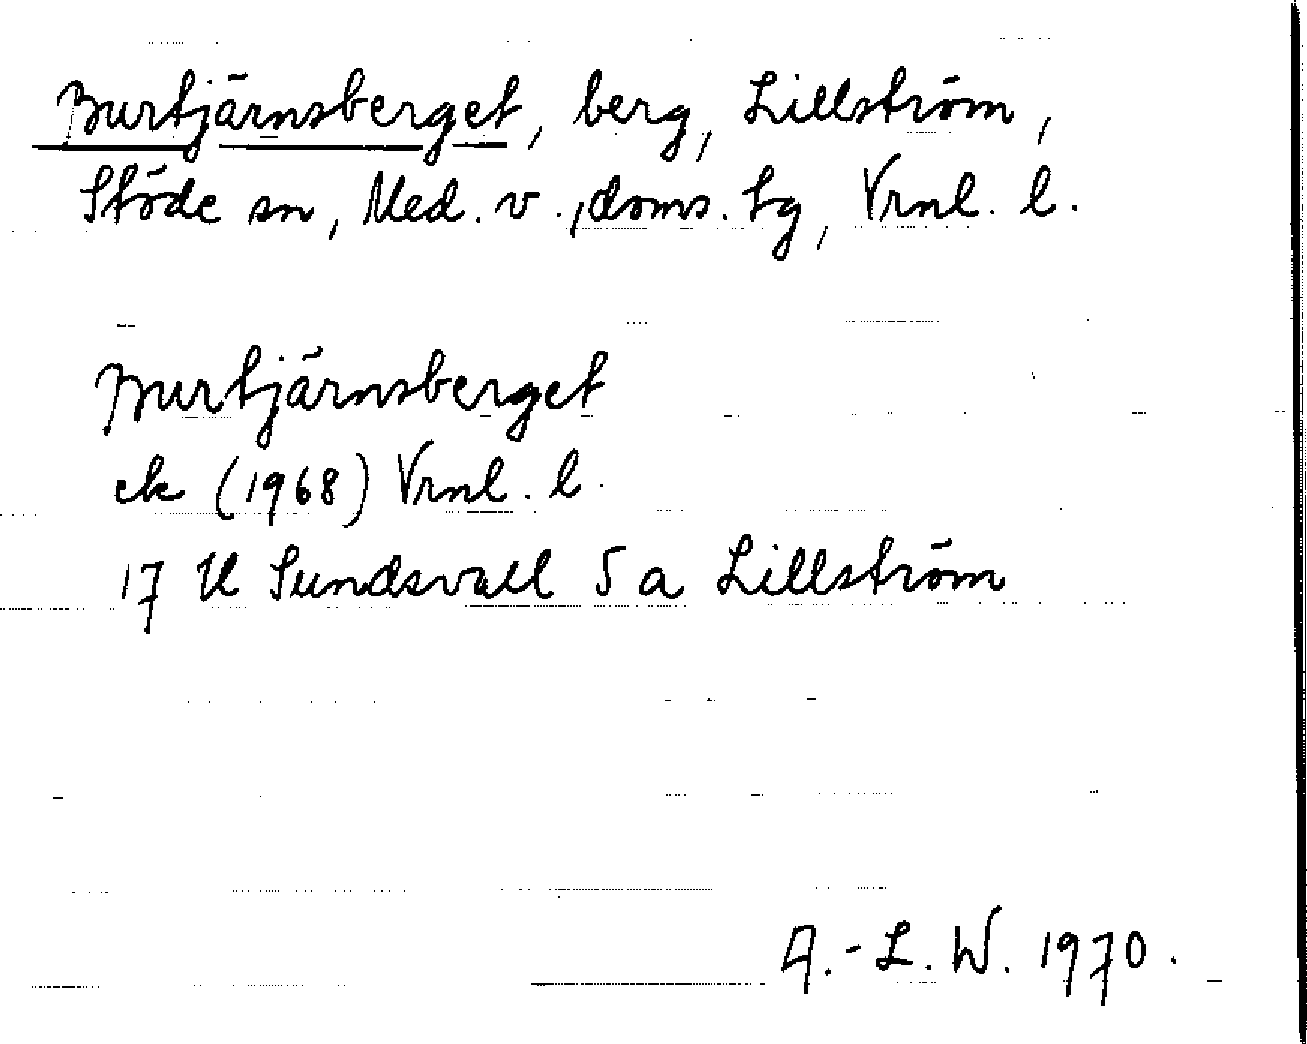 Burtjärnsberget, berg, Lillström,
Stöde sn, Med. v., doms. tg, Vrnl. l.
Burtjärnsberget
ek (1968) Vrnl. l.
17 H Sundsvall 5 a Lillström
A.-L. W. 1970.